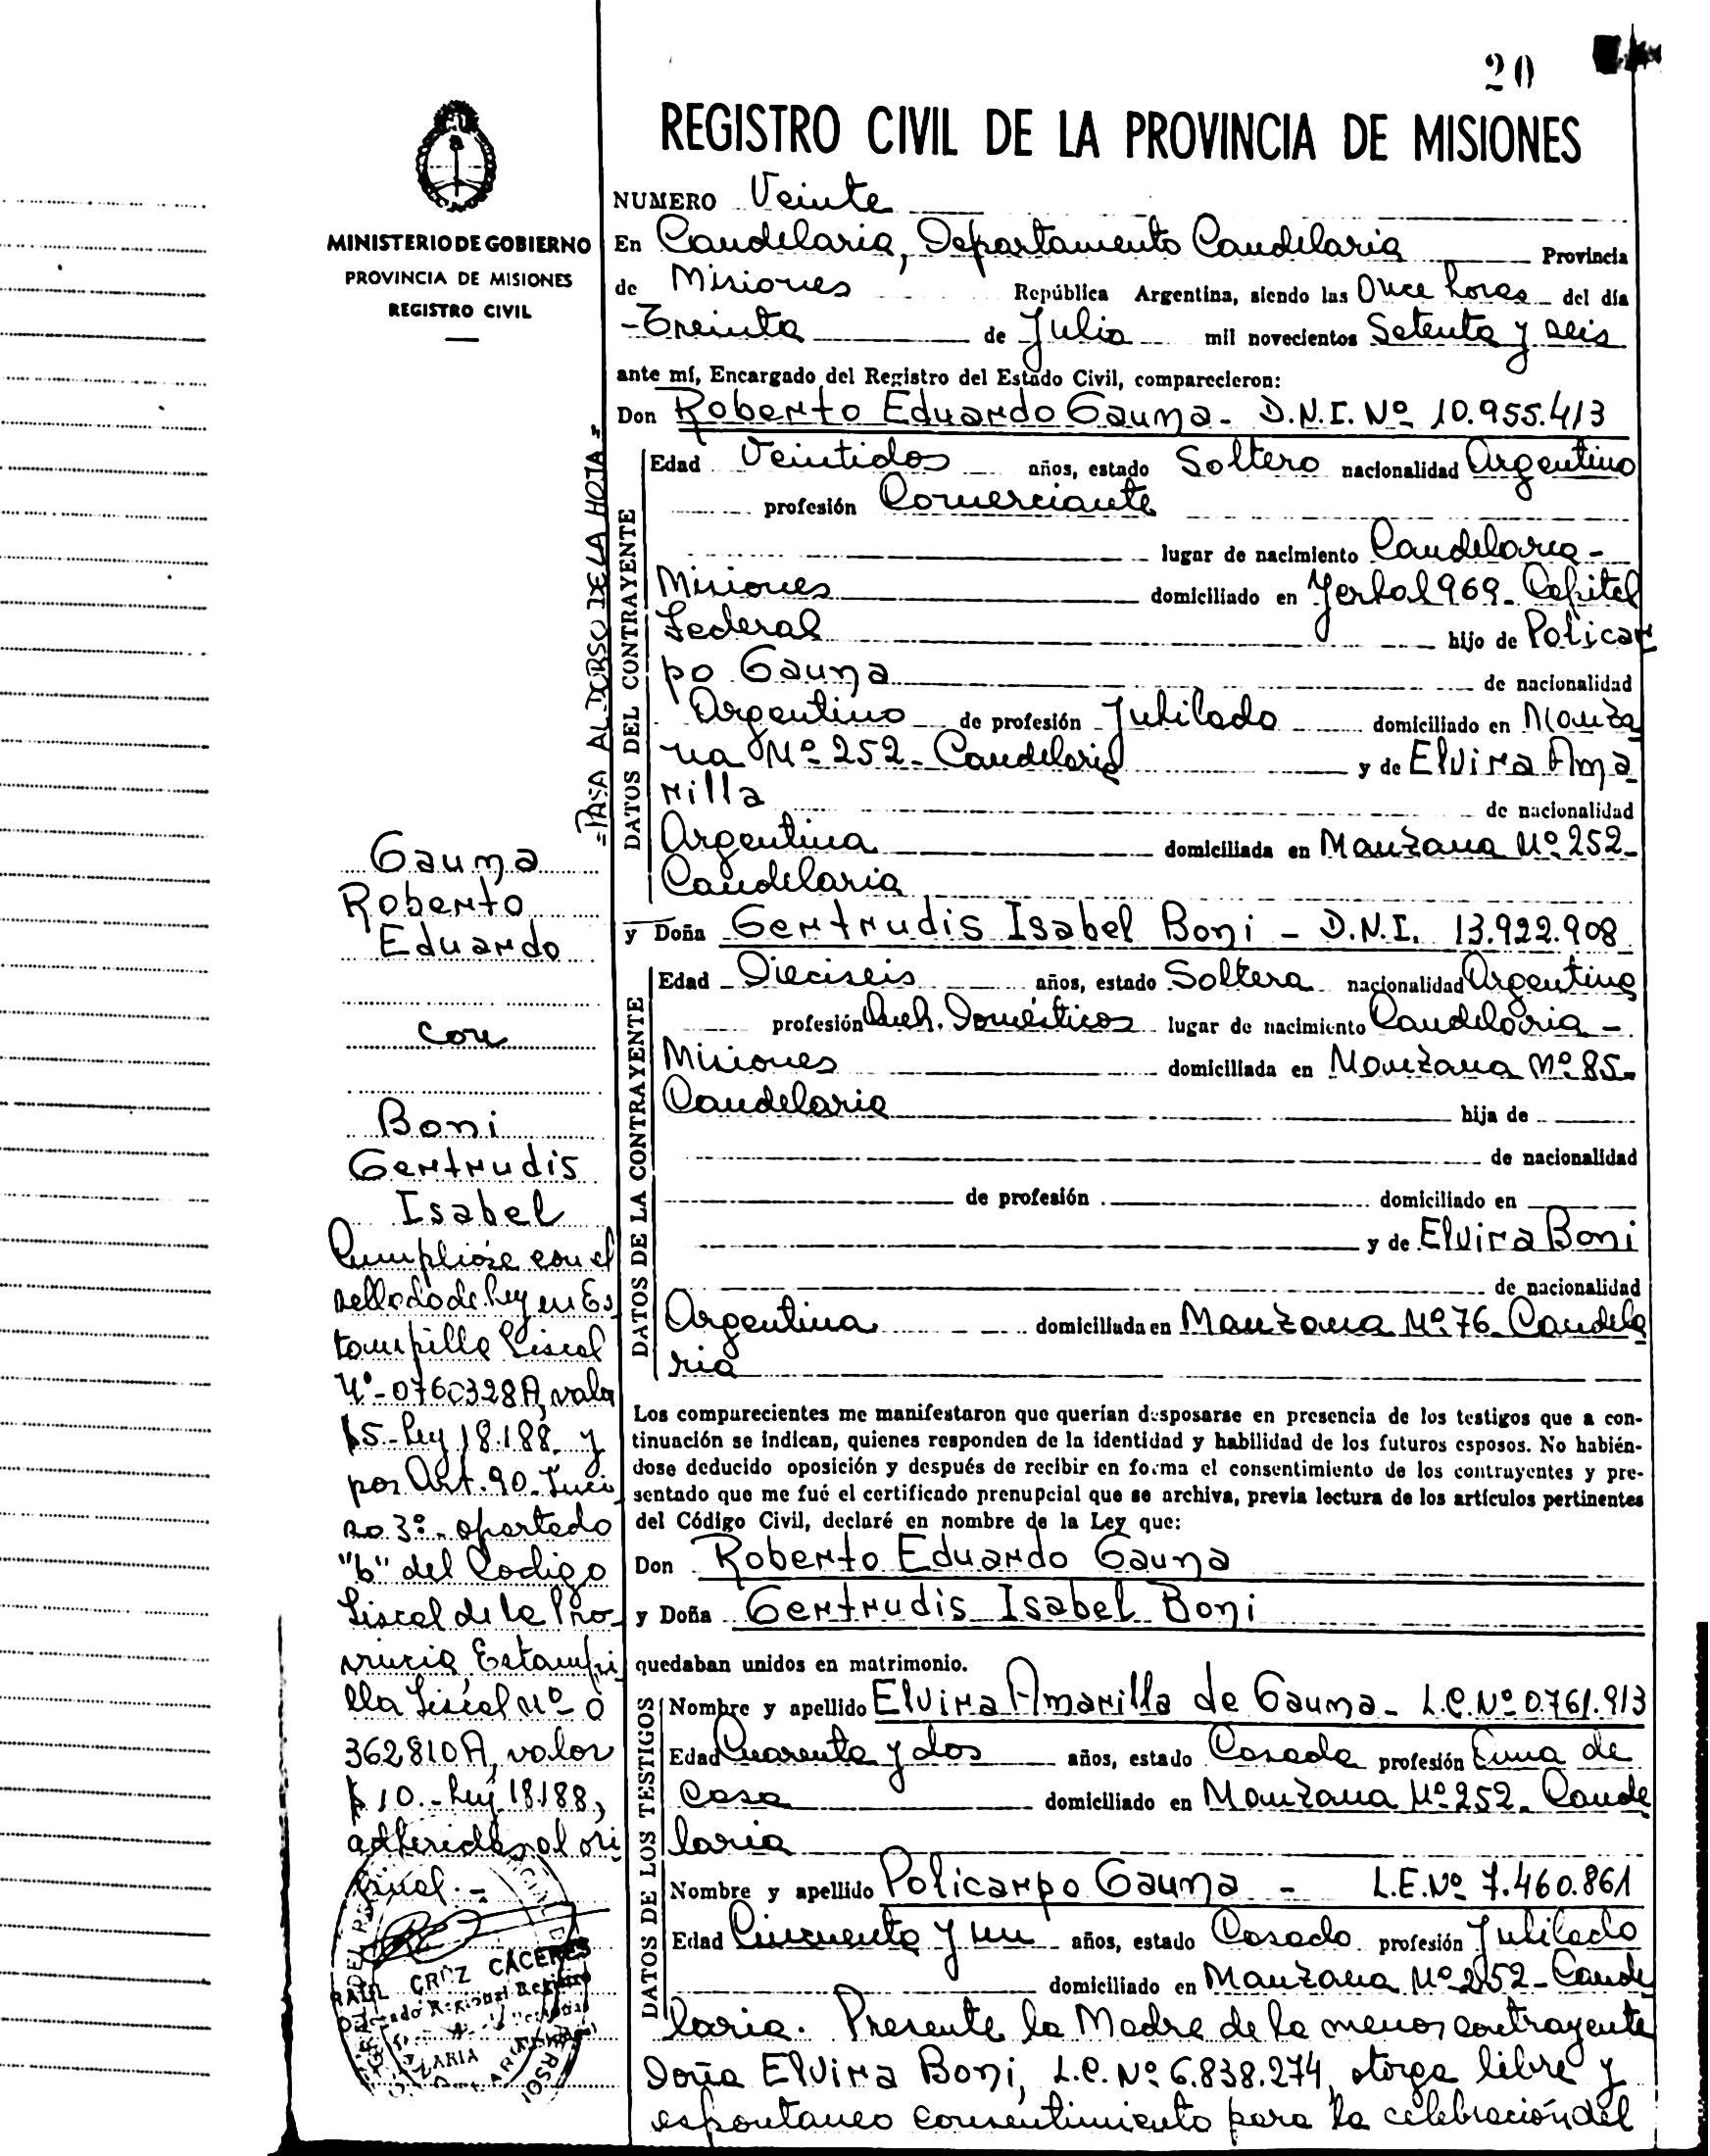 20
REGISTRO CIVIL DE LA PROVINCIA DE MISIONES
MINISTERIO DE GOBIERNO
PROVINCIA DE MISIONES
REGISTRO CIVIL
NUMERO Veinte
En Candelaria, Departamento Candelaria Provincia
de Misiones República Argentina, siendo las Once horas del día
-Treinta de Julio mil novecientos Setenta y seis
ante mí, Encargado del Registro del Estado Civil, comparecieron:
Don Roberto Eduardo Gauna - D.N.I. Nº 10.955.413
DATOS DEL CONTRAYENTE
Edad Veintidos años, estado Soltero nacionalidad Argentino
profesión Comerciante
lugar de nacimiento Candelaria -
Misiones domiciliado en Yerbal 969 - Capital
Federal hijo de Policar
po Gauna de nacionalidad
Argentino de profesión Jubilado domiciliado en Manza
na Nº 252 - Candelaria y de Elvira Ama
rilla de nacionalidad
Argentina domiciliada en Manzana Nº 252-
Candelaria
= PASA AL DORSO DE LA HOJA =
y Doña Gertrudis Isabel Boni - D.N.I. 13.922.908
DATOS DE LA CONTRAYENTE
Edad Dieciseis años, estado Soltera nacionalidad Argentina
profesión Queh. Domésticos lugar de nacimiento Candelaria -
Misiones domiciliada en Manzana Nº 85-
Candelaria hija de
de nacionalidad
de profesión domiciliado en
y de Elvira Boni
de nacionalidad
Argentina domiciliada en Manzana Nº 76 - Candela
ria
Los comparecientes me manifestaron que querían desposarse en presencia de los testigos que a con-
tinuación se indican, quienes responden de la identidad y habilidad de los futuros esposos. No habién-
dose deducido oposición y después de recibir en forma el consentimiento de los contrayentes y pre-
sentado que me fué el certificado prenupcial que se archiva, previa lectura de los artículos pertinentes
del Código Civil, declaré en nombre de la Ley que:
Don Roberto Eduardo Gauna
y Doña Gertrudis Isabel Boni
quedaban unidos en matrimonio.
DATOS DE LOS TESTIGOS
Nombre y apellido Elvira Amarilla de Gauna - L.C. Nº 0.761.913
Edad Cuarenta y dos años, estado Casada profesión Ama de
Casa domiciliado en Manzana Nº 252 - Cande
laria
Nombre y apellido Policarpo Gauna - L.E. Nº 7.460.861
Edad Cincuenta y un años, estado Casado profesión Jubilado
domiciliado en Manzana Nº 252 - Cande
laria. Presente la Madre de la menor contrayente
Doña Elvira Boni, L.C. Nº 6.838.274, otorga libre y
espontaneo consentimiento para la celebración del
Gauna
Roberto
Eduardo
con
Boni
Gertrudis
Isabel
Cumplióse con el
sellado de ley en Es
tampilla Fiscal
Nº-0760328A, valor
$5.- Ley 18.188 y
por Art. 90 - Inci
so 3º - apartado
"b" del Codigo
Fiscal de la Pro-
vincia, Estampi
lla Fiscal Nº 0
362810A, valor
$ 10.- Ley 18.188,
adheridas al ori
ginal.-
RAUL CRUZ CACERES